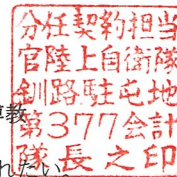 分任契約担当
官陸上自衛隊
釧路駐屯地
第377会計
隊長之印
教
れたい。